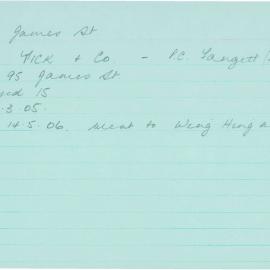 James St
TICK & Co. - P.C. Langett
95 James St
15
3.05.
14.5.06. went to Wing Hing